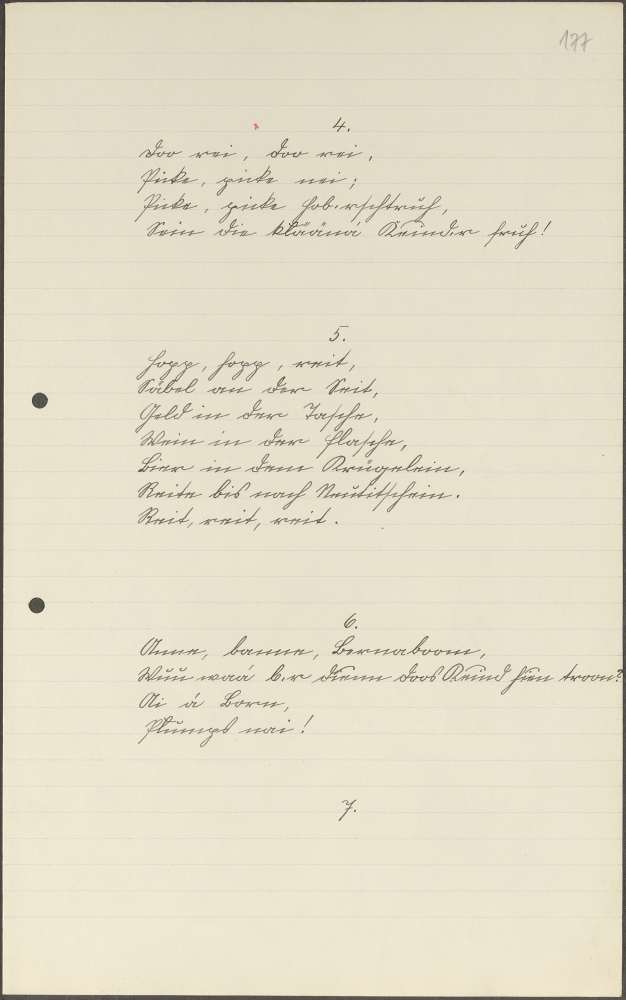 177
4.
Doo rei, doo rei,
Picke, picke nei;
Picke, picke Hob.rschtruh,
Sein die klääná Keind.r fruh!
5.
Hopp, hopp, reit,
Säbel an der Seit,
Geld in der Tasche,
Wein in der Flasche,
Bier in dem Krügelein,
Reite bis nach Neutitschein.
Reit, reit, reit.
6.
Anne, banne, Bernaboom,
Wuu waá b.r dienn doos Keind hien troon?
Ai á Born,
Plumps nai!
7.